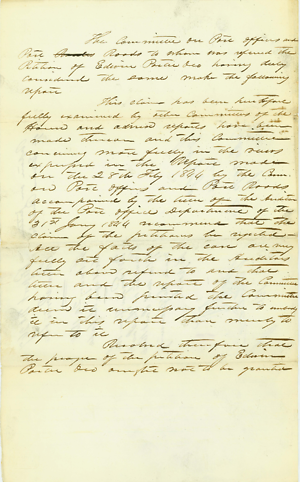 The Committee on Post offices and
Post Roads to whom was referred the
Petition of Edwin Porter &co having duly
considered the same make the following
report
This claim has been heretofore
fully examined by other Committees of the
House and adverse reports have been
made thereon and this Committee
concurring most fully in the views
expressed in the Report made
on the 28th Feby 1834 by the Com.
on Post offices and Post Roads
accompanied by the letter of the Auditor
of the Post office Department of the
31st Jany 1834 recommend that the
claim of the petitioners be rejected
All the facts of the case are very
fully set forth in the Auditors
letter above referred to and that
letter and the report of the Committee
having been printed the Committee
deem it unnecessary further to embody
it in this report than merely to
refer to it
Resolved therefore that
the prayer of the petition of Edwin
Porter &co ought not to be granted